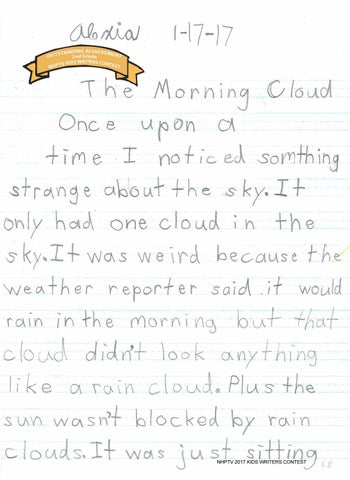 Alexia 1-17-17
OUTSTANDING ACHIEVEMENT
2nd Grade
NHPTV KIDS WRITERS CONTEST
The Morning Cloud
Once upon a
time I noticed somthing
strange about the sky. It
only had one cloud in the
sky. It was weird because the
weather reporter said it would
rain in the morning but that
cloud didn't look anything
like a rain cloud. Plus the
sun wasn't blocked by rain
clouds. It was just sitting
NHPTV 2017 KIDS WRITERS CONTEST